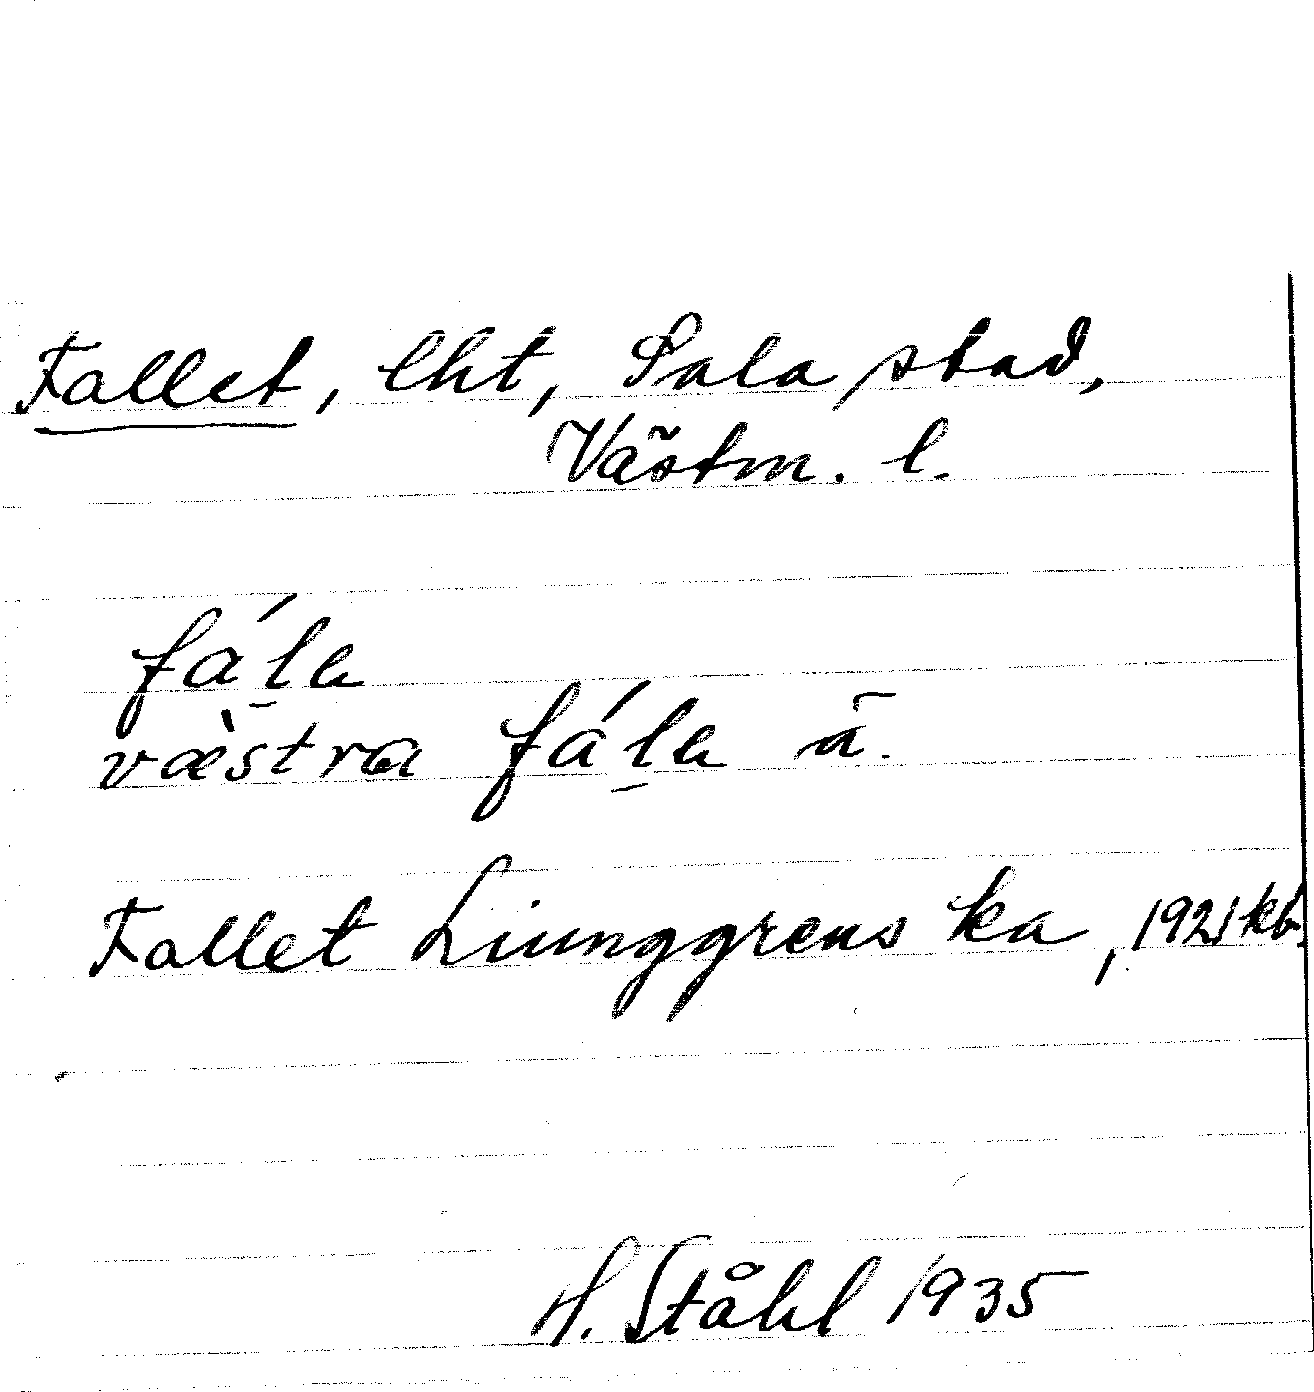 Fallet, lht, Sala stad,
Västm. l.
fá̱lɐ
væ̀stra fá̱lɐ ā.
Fallet Liunggrens ka, 1921 kb.
H. Ståhl 1935